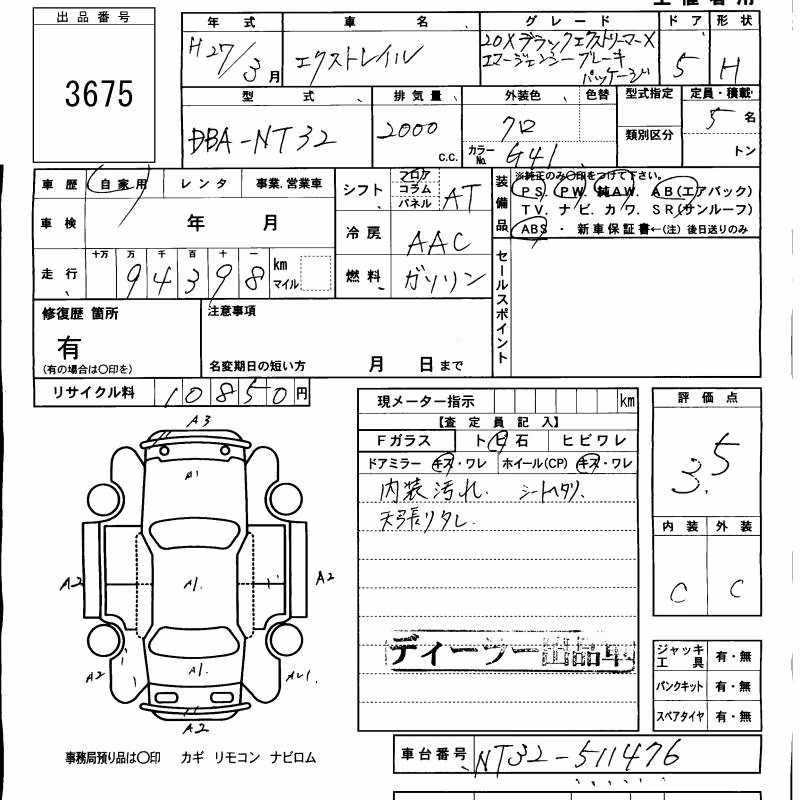 出品番号
3675
年式 車名 グレード ドア 形状
H27/3月 エクストレイル 20XブラックエクストリーマーX エマージェンシーブレーキ パッケージ 5 H
型式 排気量 外装色 色替 型式指定 定員・積載
DBA-NT32 2000 c.c. クロ カラーNo. G41 類別区分 5名
トン
車歴 自家用 レンタ 事業.営業車
車検 年 月
走行 十万 万 千 百 十 一 km マイル
94398
シフト フロア コラム パネル AT
冷房 AAC
燃料 ガソリン
装備品
※純正のみ〇印をつけて下さい。
PS. PW. 純AW. AB(エアバック)
TV. ナビ. カワ. SR(サンルーフ)
ABS ・ 新車保証書←(注)後日送りのみ
セールスポイント
修復歴 箇所
有
(有の場合は〇印を)
注意事項
名変期日の短い方 月 日まで
リサイクル料 10850円
現メーター指示 km
【査定員記入】
Fガラス ト日石 ヒビワレ
ドアミラー キズ・ワレ ホイール(CP) キズ・ワレ
内装汚れ. シートヘタリ.
天張りタレ.
ディーラー出品車
評価点
3.5
内装 外装
C C
ジャッキ工具 有・無
パンクキット 有・無
スペアタイヤ 有・無
A3
A1
A2 A1. A2
A2 A1.
A2
事務局預り品は〇印 カギ リモコン ナビロム
車台番号 NT32-511476